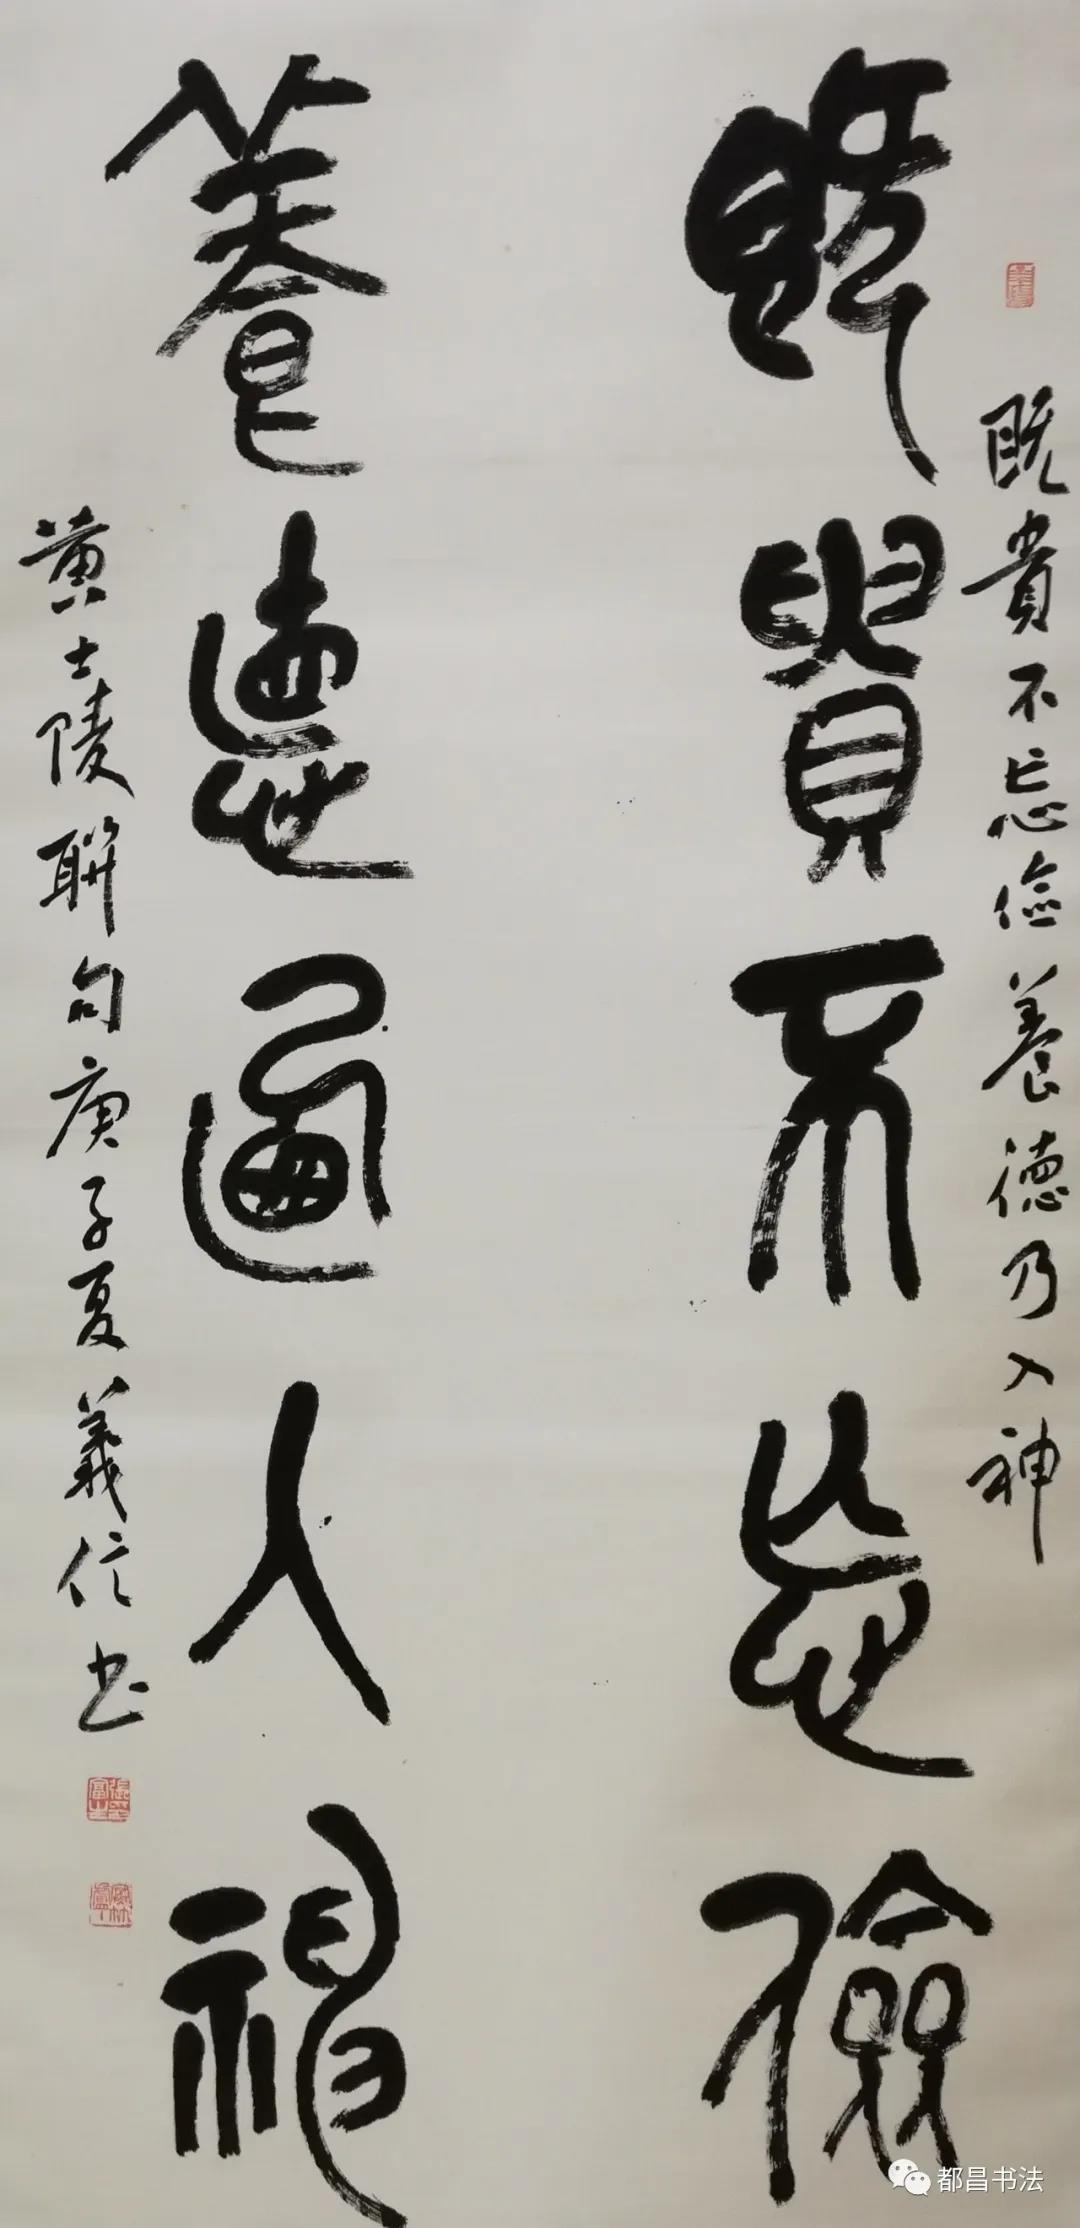 既贵不忘俭养德乃入神
既貴不忘儉
養德迺入神
黄士陵聯句庚子夏義信书
都昌书法